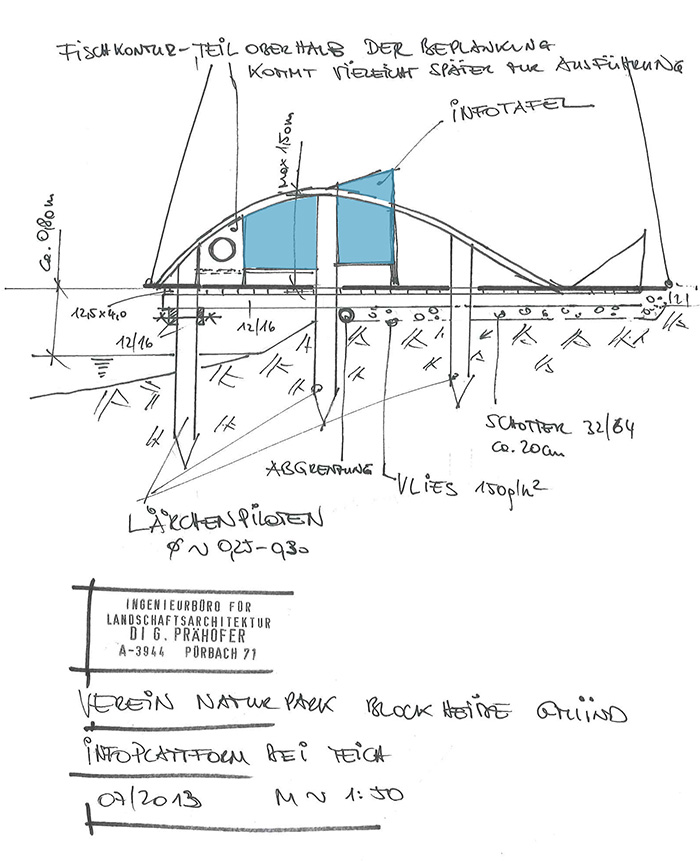 FISCHKONTUR-TEIL OBERHALB DER BEPLANKUNG
KOMMT VIELEICHT SPÄTER ZUR AUSFÜHRUNG
INFOTAFEL
max 1,50m
ca. 0,80m
12,5x4,0
12/16
12/16
SCHOTTER 32/64
ca. 20cm
ABGRENZUNG
VLIES 150g/m²
LÄRCHENPILOTEN
ø ~ 0,25-0,30
INGENIEURBÜRO FÜR
LANDSCHAFTSARCHITEKTUR
DI G. PRÄHOFER
A-3944 PÜRBACH 71
VEREIN NATURPARK BLOCKHEIDE GMÜND
INFOPLATTFORM BEI TEICH
07/2013 M ~ 1:50